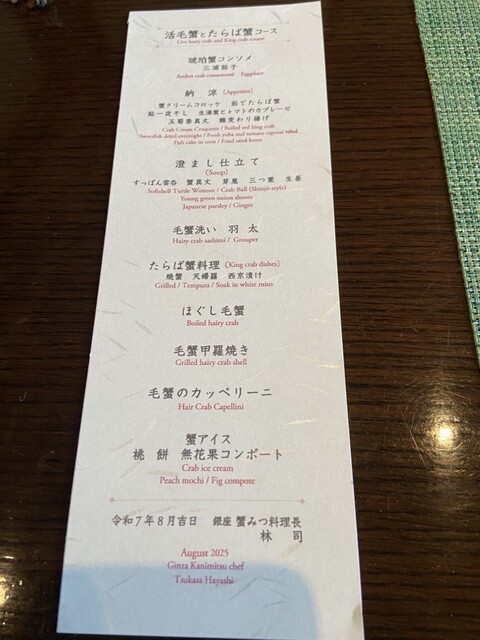 活毛蟹とたらば蟹コース
Live hairy crab and King crab course
琥珀蟹コンソメ
三浦茄子
Amber crab consommé Eggplant
納 涼 (Appetizer)
蟹クリームコロッケ 茹でたらば蟹
鮎一夜干し 生湯葉とトマトのカプレーゼ
玉蜀黍真丈 鱧変わり揚げ
Crab Cream Croquette / Boiled red king crab
Sweetfish dried overnight / Fresh yuba and tomato caprese salad
Fish cake in corn / Fried
澄まし仕立て
(Soup)
すっぽん雲呑 蟹真丈 芽葱 三つ葉 生姜
Softshell Turtle Wonton / Crab Ball (Shinjo-style)
Young green onion shoots
Japanese parsley / Ginger
毛蟹洗い 羽太
Hairy crab sashimi / Grouper
たらば蟹料理 (King crab dishes)
焼蟹 天婦羅 西京漬け
Grilled / Tempura / Soak in white miso
ほぐし毛蟹
Boiled hairy crab
毛蟹甲羅焼き
Grilled hairy crab shell
毛蟹のカッペリーニ
Hair Crab Capellini
蟹アイス
桃 餅 無花果コンポート
Crab ice cream
Peach mochi / Fig compote
令和7年8月吉日 銀座 蟹みつ料理長
林 司
August 2025
Ginza Kanimitsu chef
Tsukasa Hayashi